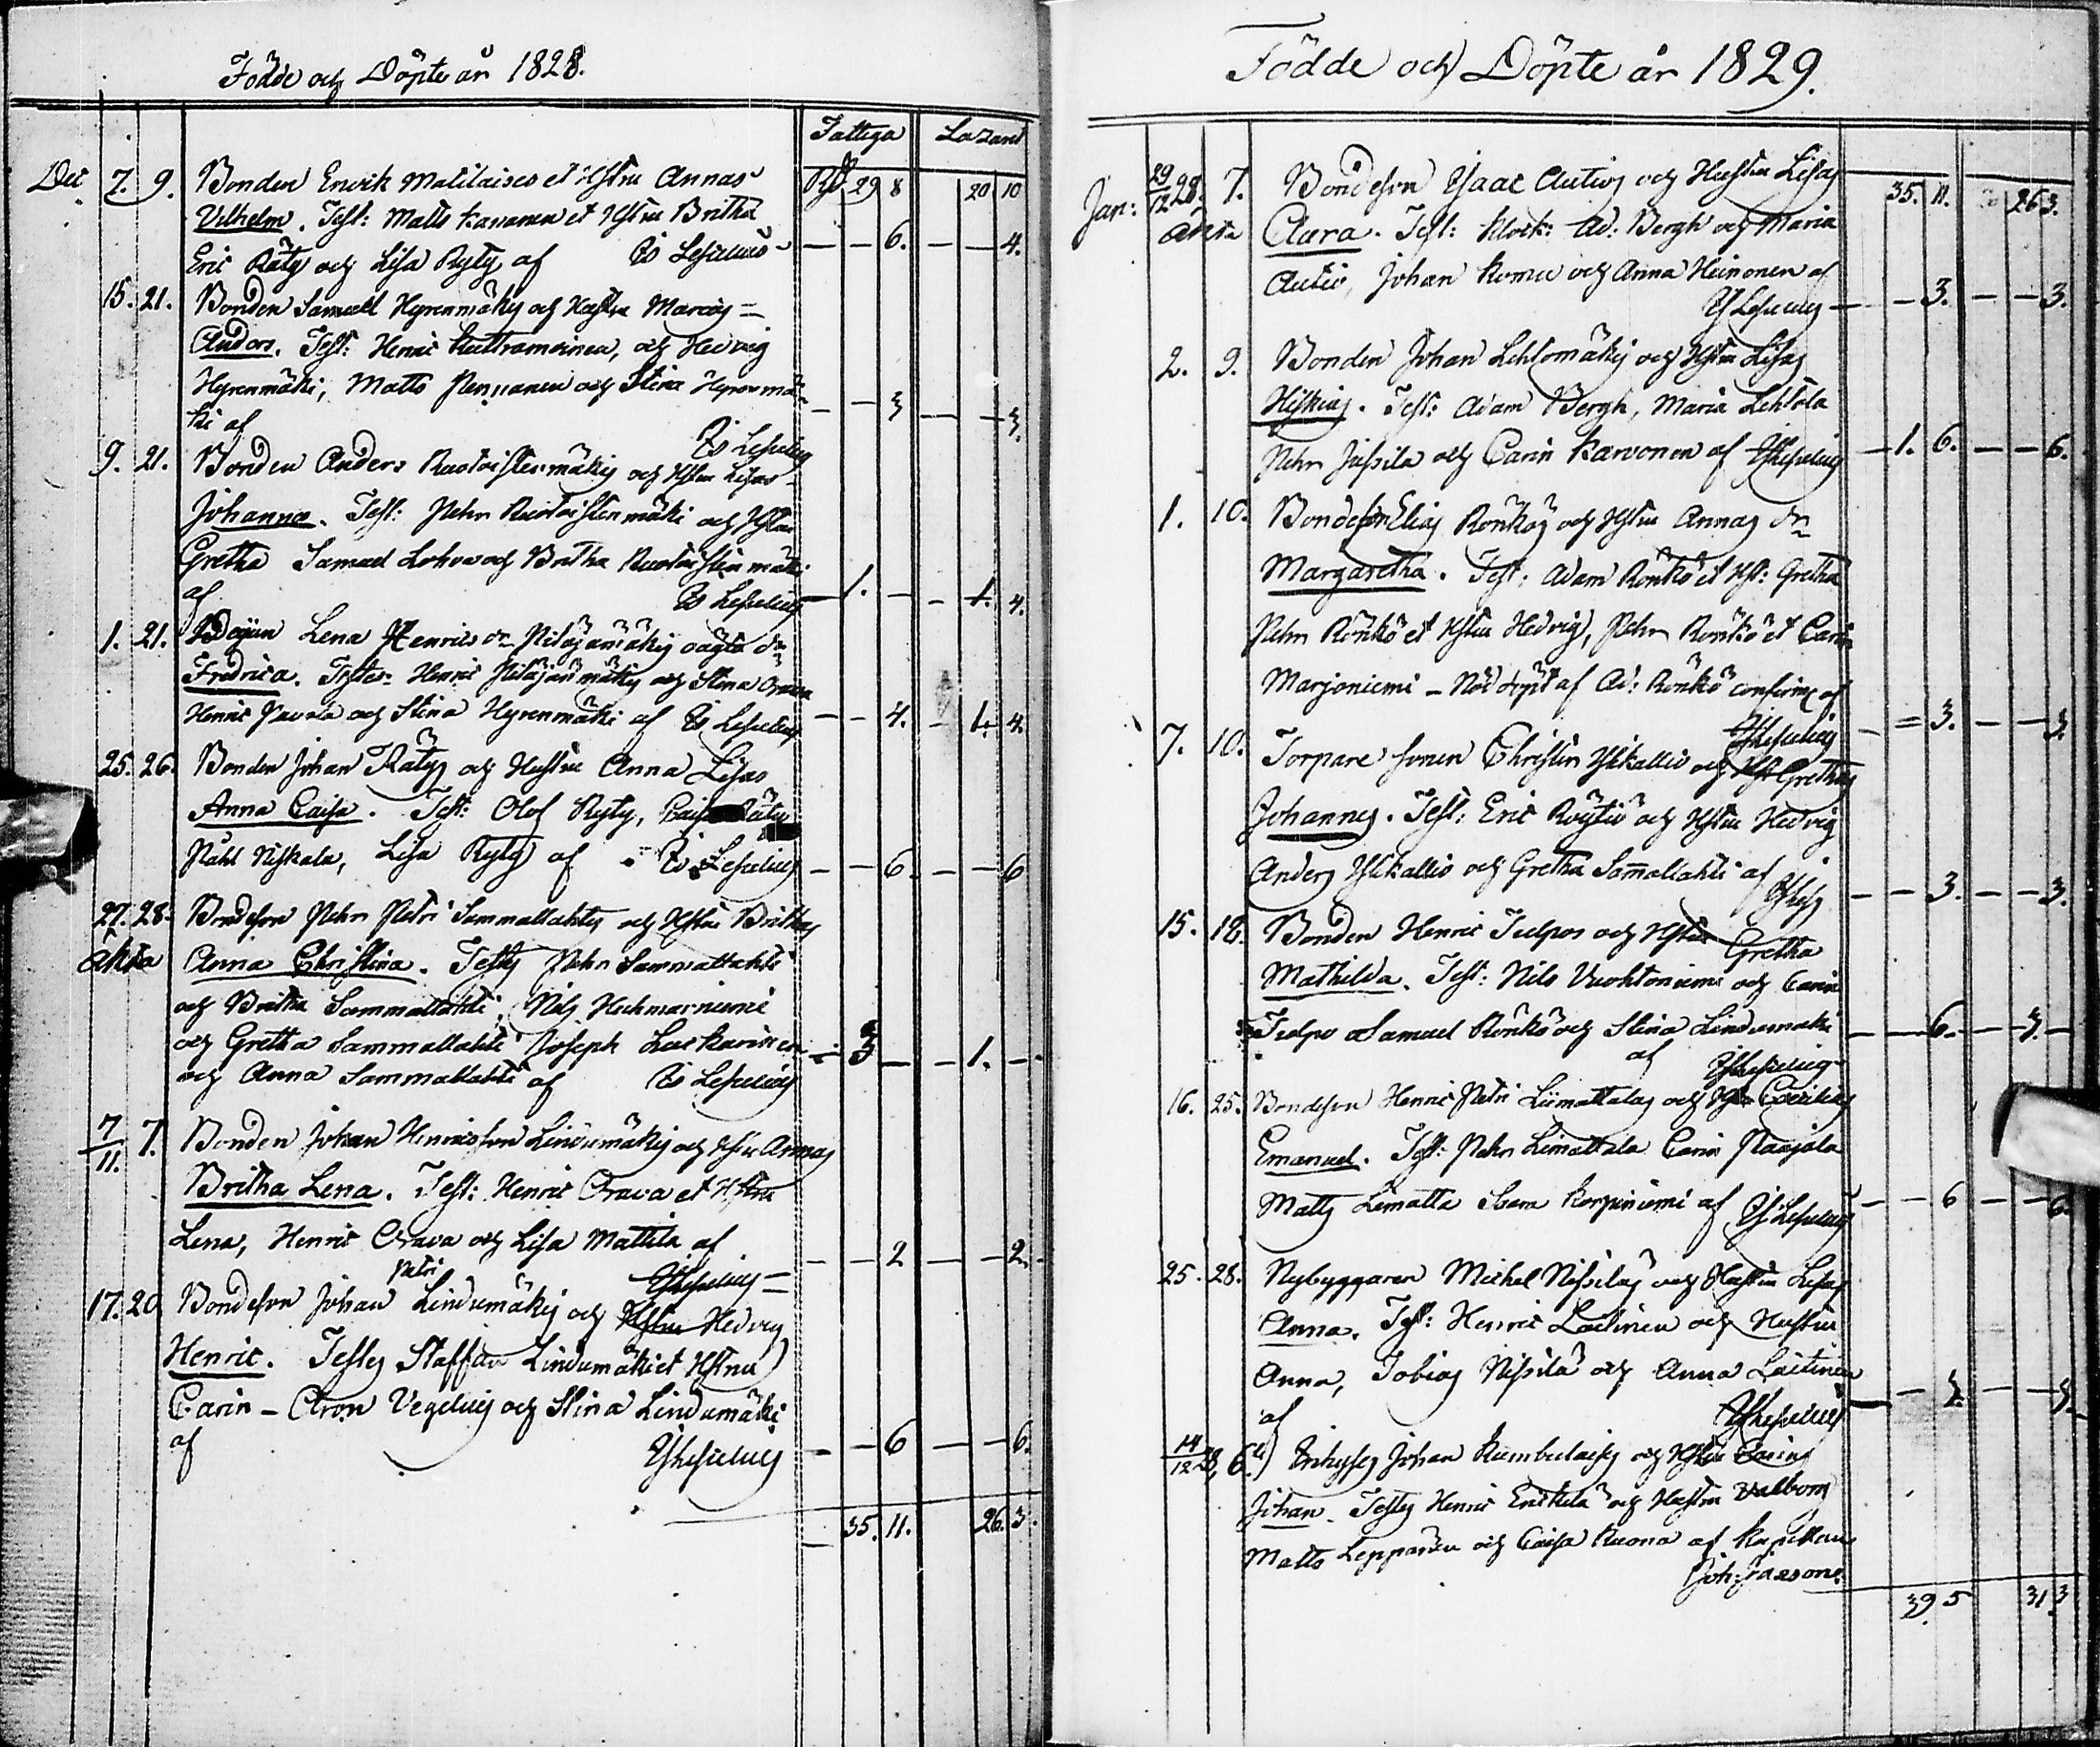 Födde och Döpte år 1828.
Fattiga Lazaret
Dec 7. 9. Bonden Enrik Matilaises et Hstru Annas 29 8 20 10
Vilhelm. Test: Matts Kananen et Hstru Britha
Eric Räty och Lisa Ryty af Is Lesuelius — — 6. — — 4.
15. 21. Bonden Samuel Hyrenmäkis och Hustru Marias
Anders. Test: Henric Kuttramoinen, och Hedvig
Hyrenmäki, Matts Pennanen och Stina Hyrenmä-
ki af Is Lesuelius — — 3 — — 3.
9. 21. Bonden Anders Ruotoistenmäkis och Hstru Lisas
Johannes. Test: Pehr Ruotoistenmäki och Hstru
Gretha Samuel Lohva och Britha Ruotoistenmäki
af Is Lesuelius — 1. — — 1. 4.
1. 21. Pigan Lena Henrics dr Pitäjämäkis oägta dr
Fredrica. Testes Henric Pitäjänmäki och Stina Orava
Henric Pavola och Stina Hyrenmäki af Is Lesuelius — — 4. — 1. 4.
25. 26. Bonden Johan Rätys och Hustru Anna Lisas
Anna Caisa. Test: Olof Ryty, Caisa Räty
Påhl Niskala, Lisa Ryty af Is Lesuelius — — 6. — — 6
27. 28. Bondeson Pehr Petri Sammallahtis och Hstru Brithas
Akta Anna Christina. Testes Pehr Sammallahti
och Britha Sammallahti, Nils Heikmarniemi
och Gretha Sammallahti Joseph Laukarinen — 3 — 1. —
och Anna Sammallahti af Is Lesuelius
7/11. 7. Bonden Johan Henricsson Lindumäkis och Hstru Annas
Britha Lena. Test: Henric Orava et Hstru
Lena, Henric Orava och Lisa Mattila af — — 2 — — 2.
Petri Is Lesuelius
17. 20 Bondeson Johan Lindumäkis och Hstru Hedvig
Henric. Testes Staffan Lindumäki et Hstru
Carin – Aron Vegelius och Stina Lindumäki
af Is Lesuelius — — 6 — — 6.
35. 11. 26. 3.
Födde och Döpte år 1829.
Jan: 29/12 28. 7. Bondeson Isaac Autios och Hustru Lisas 35. 11. 26 3.
Akta Clara. Test: Klock: Ad: Bergh och Maria
Autio, Johan Komu och Anna Heinonen af
Is Lesuelius — — 3. — — 3.
2. 9. Bonden Johan Lehtomäkis och Hstru Lisas
Hiskias. Test: Adam Bergh, Maria Lehtola
Pehr Jussila och Carin Karvonen af Is Lesuelius — 1. 6. — — 6.
1. 10. Bondeson Elias Rönkös och Hstru Annas dr
Margaretha. Test: Adam Rönkö et Hst: Gretha
Pehr Rönkö et Hstru Hedvig, Pehr Rönkö et Carin
Marjoniemi – Nöd döpt af Ad: Rönkö confirm: af
Is Lesuelius — 3. — — 3.
7. 10. Torpare sonen Christer Ylikallio och Hst Grethas
Johannes. Test: Eric Röytiö och Hstru Hedvig
Anders Ylikallio och Gretha Sammallahti af Is Les — — 3. — — 3.
15. 18. Bonden Henric Tulpos och Hstru Gretha
Mathilda. Test: Nils Vuohtoniemi och Carin
Tulpo Samuel Rönkö och Stina Lindumäki — — 6. — — 3. —
af Is Lesuelius
16. 25. Bondeson Henric Petri Liimattalas och Hstr Cecilias
Emanuel. Test: Pehr Limattala Carin Paajala
Matts Limatta Sara Korpiniemi af Is Lesuelius — — 6 — — 6.
25. 28. Nybyggaren Michel Nissiläs och Hustru Lisas
Anna. Test: Henric Laitinen och Hustru
Anna, Tobias Nissilä och Anna Laitinen
af Is Lesuelius — — 3. — — 3.
14/12 28, 6te) Inhyses Johan Kumbulaises och Hstru Carins
Johan. Testes Henric Enckelä och Hustru Valborg
Matts Leppänen och Caisa Kuona af Kapellan
Joh: Frosone.
39. 5 31. 3